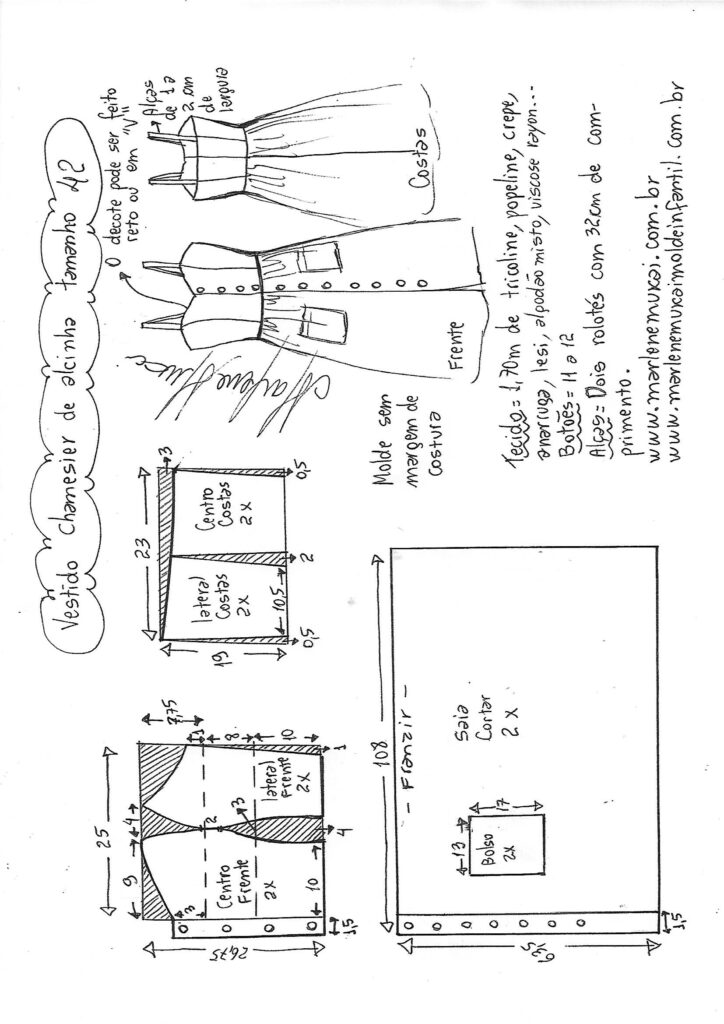 Vestido chamesier de alcinha tamanho 42
O decote pode ser feito
reto ou em "V"
Alças
de 1 a
2 cm
de
largura
Costas
Frente
Molde sem
margem de
costura
Tecido = 1,70m de tricoline, popeline, crepe,
anarruga, lesi, algodão misto, viscose rayon...
Botões = 11 a 12
Alças = Dois rolotés com 32cm de com-
primento.
www.marlenemukai.com.br
www.marlenemukaimoldeinfantil.com.br
23
3
19
lateral
Costas
2x
Centro
Costas
2x
0,5
10,5
2
0,5
25
9
4
7,75
3
2
3
1
8
10
Centro
Frente
2x
lateral
Frente
2x
10
4
1
26,75
1,5
108
- Franzir -
Saia
Cortar
2x
13
17
Bolso
2x
1,5